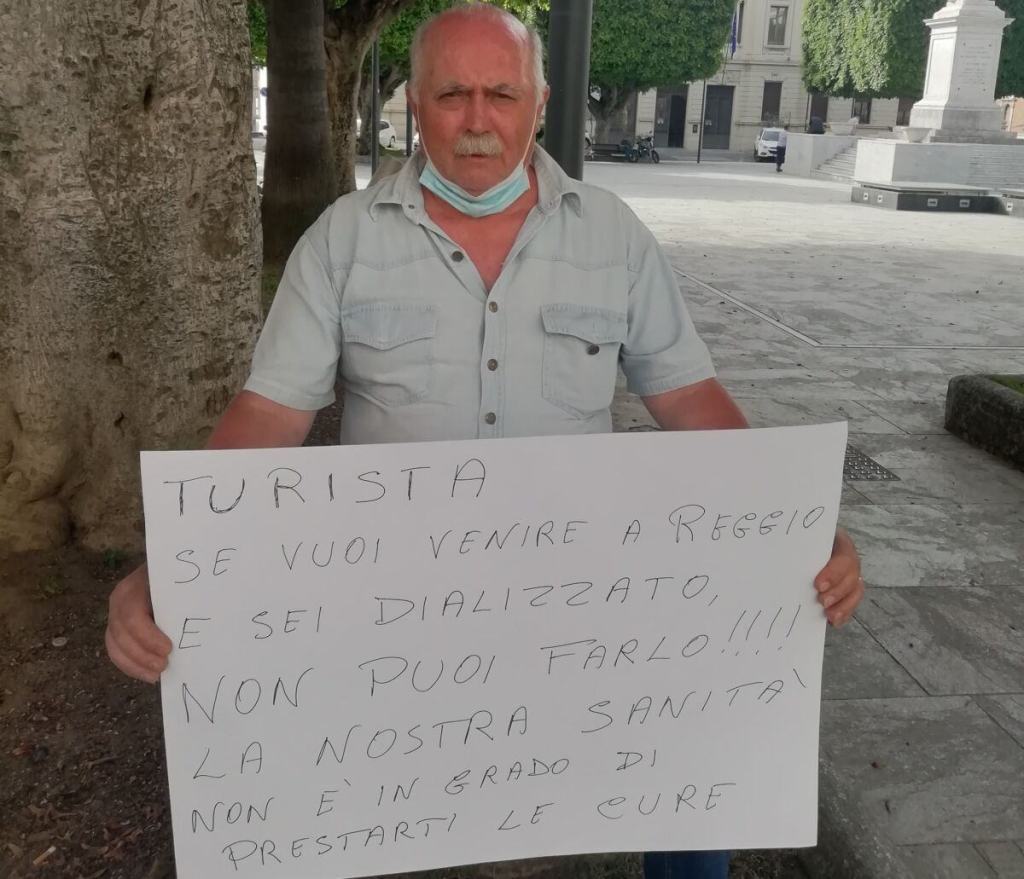 TURISTA
SE VUOI VENIRE A REGGIO
E SEI DIALIZZATO,
NON PUOI FARLO!!!!
LA NOSTRA SANITA'
NON E' IN GRADO DI
PRESTARTI LE CURE